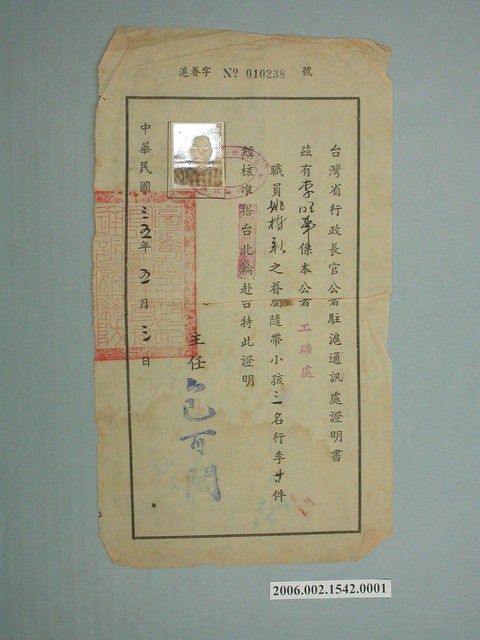 滬眷字 № 010238 號
台灣省行政長官公署駐滬通訊處證明書
茲有李明華係本公署工礦處
職員姚樹彩之眷屬隨帶小孩三名行李廿件
經核准搭台北輪赴台特此證明
主任
中華民國三五年五月三日
2006.002.1542.0001